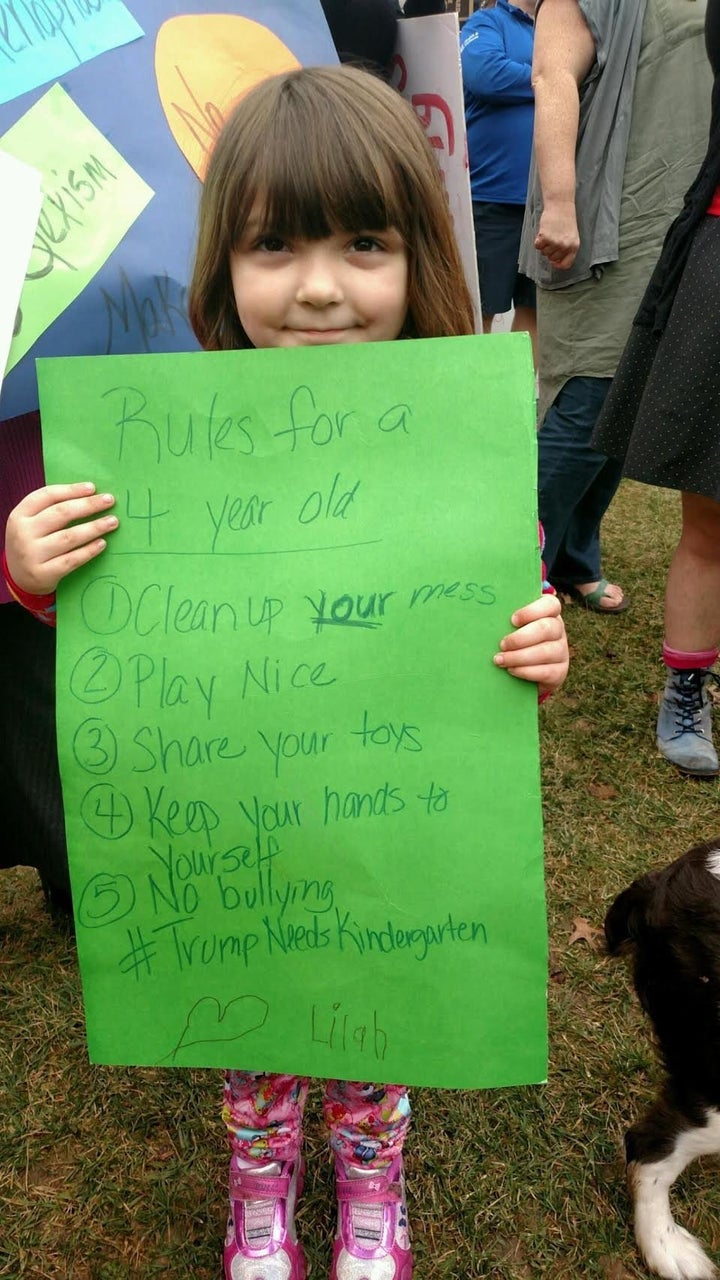 No
Sexism
Make
Rules for a
4 year old
① Clean up your mess
② Play Nice
③ Share your toys
④ Keep your hands to
yourself
⑤ No bullying
#TrumpNeedsKindergarten
♡ Lilah